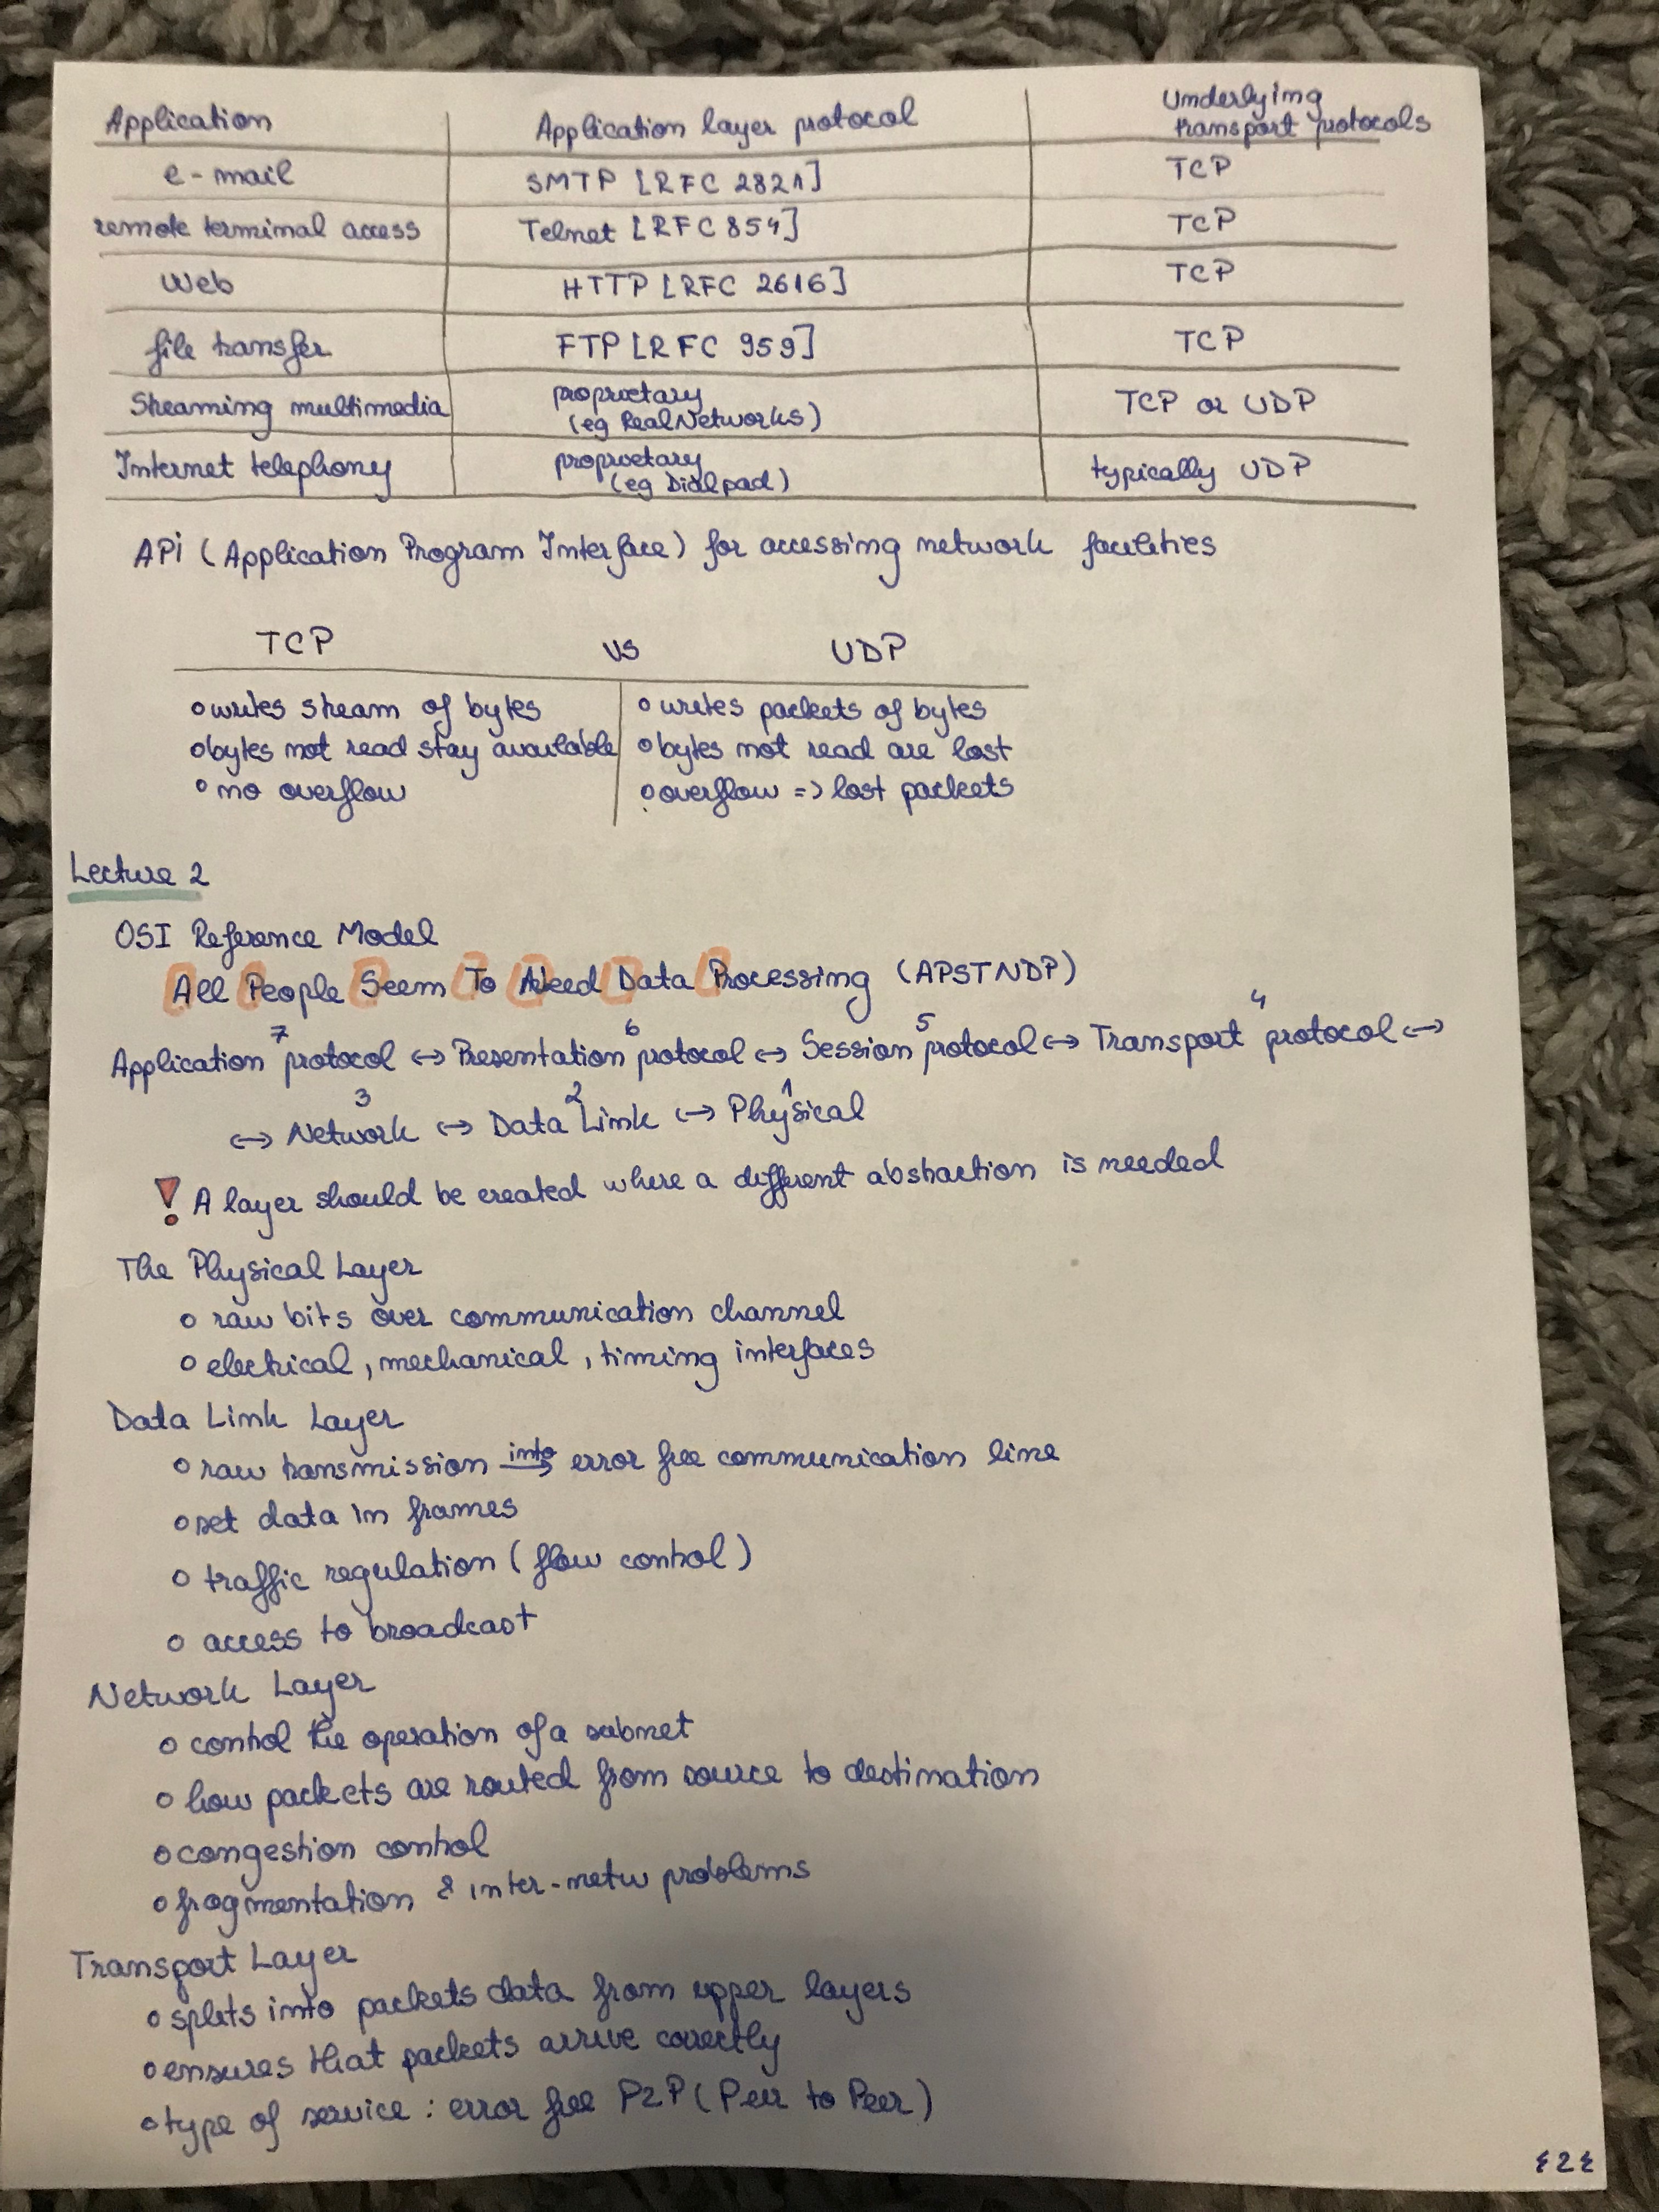 Application | Application layer protocol | Underlying transport protocols
e-mail | SMTP [RFC 2821] | TCP
remote terminal access | Telnet [RFC 854] | TCP
Web | HTTP [RFC 2616] | TCP
file transfer | FTP [RFC 959] | TCP
Streaming multimedia | proprietary (eg RealNetworks) | TCP or UDP
Internet telephony | proprietary (eg Dialpad) | typically UDP
API (Application Program Interface) for accessing network facilities
TCP vs UDP
o writes stream of bytes | o writes packets of bytes
o bytes not read stay available | o bytes not read are lost
o no overflow | o overflow => lost packets
Lecture 2
OSI Reference Model
All People Seem To Need Data Processing (APSTNDP)
Application 7 protocol <-> Presentation 6 protocol <-> Session 5 protocol <-> Transport 4 protocol <->
<-> Network 3 <-> Data Link 2 <-> Physical 1
! A layer should be created where a different abstraction is needed
The Physical Layer
o raw bits over communication channel
o electrical, mechanical, timing interfaces
Data Link Layer
o raw transmission into → error free communication line
o set data in frames
o traffic regulation (flow control)
o access to broadcast
Network Layer
o control the operation of a subnet
o how packets are routed from source to destination
o congestion control
o fragmentation & inter-netw problems
Transport Layer
o splits into packets data from upper layers
o ensures that packets arrive correctly
o type of service: error free P2P (Peer to Peer)
{2{